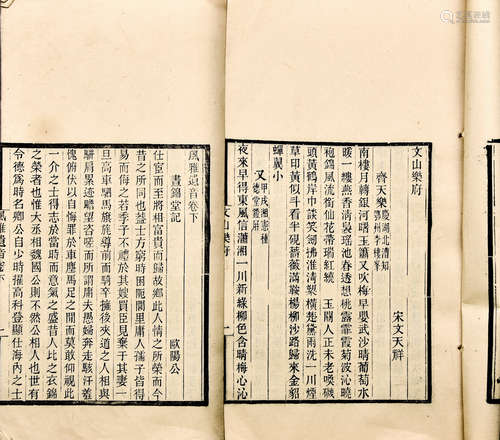 文山樂府
宋文天祥
齊天樂 慶湖北漕知鄂州李樓峯
南樓月轉銀河曙玉簫又吹梅早鸚武沙晴葡萄水
暖一縷燕香清裊瑤池春透想桃露霏霞菊波沁曉
袍錦風流御仙花帶瑞虹繞 玉關人正未老喚磯
頭黃鶴岸巾談笑劍拂淮清槊橫楚黛雨洗一川煙
草印黃似斗看半硯薔薇滿鞍楊柳沙路歸來金貂
蟬翼小
又 甲戌湘憲種德堂燈屏
夜來早得東風信瀟湘一川新綠柳色含晴梅心沁
文山樂府 一
風雅遺音卷下
晝錦堂記 歐陽公
仕宦而至將相富貴而歸故鄉此人情之所榮而今
昔之所同也蓋士方窮時困阨閭里庸人孺子皆得
易而侮之若季子不禮於其嫂買臣見棄于其妻一
旦高車駟馬旗旄導前而騎卒擁後夾道之人相與
駢肩累迹瞻望咨嗟而所謂庸夫愚婦奔走駭汗羞
愧俯伏以自悔罪於車塵馬足之間而莫敢仰視此
一介之士得志於當時而意氣之盛昔人比之衣錦
之榮者也惟大丞相魏國公則不然公相人也世有
令德為時名卿公自少時擢高科登顯仕海內之士